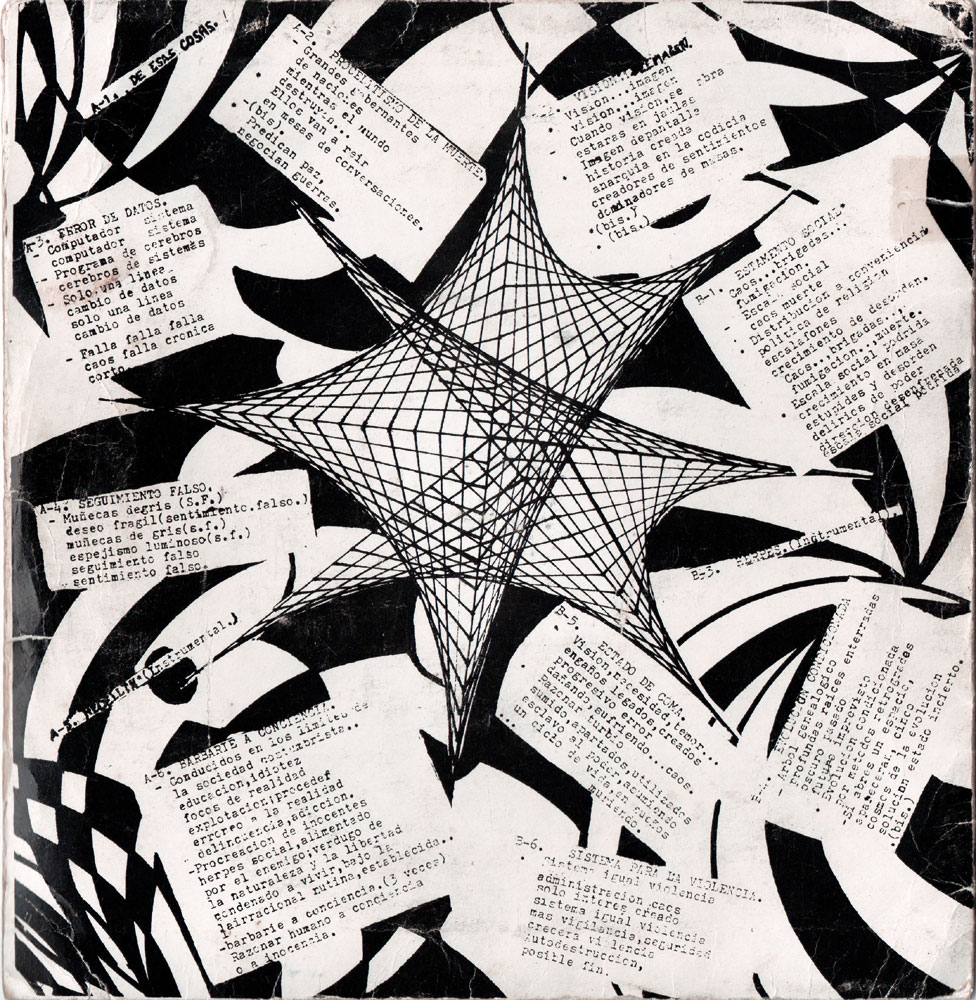 A-1. . DE ESAS COSAS.!
A-2. PROCELITISMO DE LA MUERTE.
- Grandes gobernantes
de naciones
mientras el mundo
destruyen...
Ellos van a reir
en mesas de conversaciones.
-(bis)
Predican paz,
negocian guerras.
A-3. ERROR DE DATOS.
- Computador sistema
computador sistema
Programa de cerebros
cerebros de sistemas
- Solo una linea
cambio de datos
solo una linea
cambio de datos
- Falla falla
caos falla cronica
corto
A-4. SEGUIMIENTO FALSO.
- Muñecas degris (S.F.)
deseo fragil(sentimiento.falso.)
muñecas de gris(s.f.)
espejismo luminoso(s.f.)
seguimiento falso
sentimiento falso.
(Instrumental.)
A-6. BARBARIE A CONCIENCIA.
- Conducidos en los limites de
la sociedad costumbrista..
educacion,idiotez
focos de realidad
explotacion,procedef
errores a la realidad
delincuencia,adiccion.
-Procreacion de inocentes
herpes social,alimentado
por el enemigo,verdugo de
la naturaleza y la libertad
condenado a vivir,bajo la
lairracional rutina,establecida.
-barbarie a conciencia.(3 voces)
Razonar humano a conciencia
o a inocencia.
VISION IMAGEN.
- Vision...imagen
vision...imagen obra
Cuando vision,se
estaras en jailas
- Imagen depantalla
historia creada
anarquia en la codicia
creadores de sentimientos
dominadores de masas.
*(bis.)
(bis.)
B-1. ESTAMENTO SOCIAL.
- Caos...brigadas...
fumigacion
- Escala social
caos muerte
- Distribucion a conveniencia
politica de religion
escalafones
crecimiento de desorden.
- Caos...brigadas...
fumigacion...muerte.
- Escala social podrida
crecimiento en masa
estupidas y desorden
delirios de poder
direccion desenfrenada
escala social
B-3. HERPES.(Instrumental.)
EVOLUCION CONDICIONADA
- Arbol genealogico
profundas raices enterradas
oscuro pasado
futuro imprevisto
Evolucion condicionada
por metodos retrogrados
-Si abres un espacio,
espaceial,al cinco,
cosmos de la evolucion
solucion estado incierto.
(bis.)
B-5. ECTADO DE COMA.
- Vision,necesidad,temor...
engaños legados,creados
progresivo error.
- Razonar turbio
dañando,sufriendo...caos.
sumido,apartados,utilizados
esclavo al poder,acomodando
... un ciclo de vida,en juegos
sumido.
B-6. SISTEMA PARA LA VIOLENCIA.
- Sistema igual violencia
administracion caos
solo interes creado
sistema igual violencia
mas vigilancia,seguridad
crecera violencia
Autodestruccion,
posible fin.